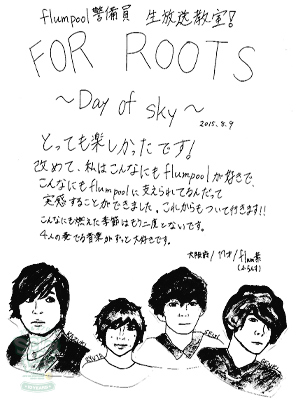 flumpool 警備員 生放送教室!
FOR ROOTS
~Day of sky~
2015.8.9
とっても楽しかったです!
改めて、私はこんなにもflumpoolが好きで、
こんなにもflumpoolに支えられてるんだって
実感することができました。これからもついて行きます!!
こんなにも燃えた季節はもう二度とないです。
4人の奏でる音楽がずっと大好きです。
大阪府/17才/flum